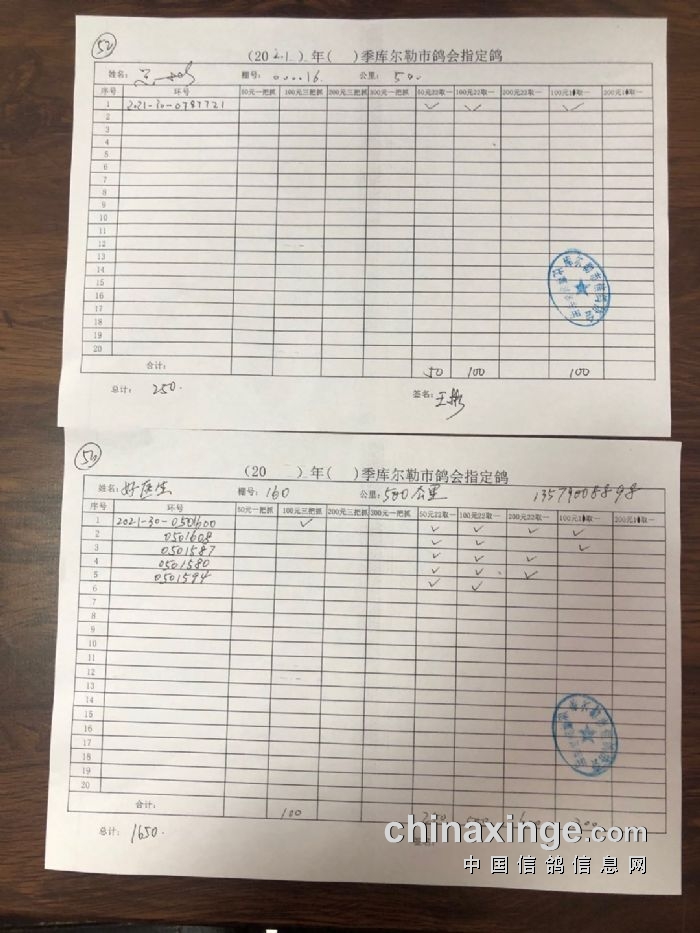 52
(2021)年( )季库尔勒市鸽会指定鸽
姓名: 棚号: 000016 公里: 500
序号 环号 50元一把抓 100元三把抓 200元三把抓 300元一把抓 50元22取一 100元22取一 200元22取一 100元10取一 200元10取一
1 2021-30-0787721 ✓ ✓ ✓
2
3
4
5
6
7
8
9
10
11
12
13
14
15
16
17
18
19
20
合计: 50 100 100
总计: 250. 签名: 王彬
库尔勒市信鸽协会
(20 )年( )季库尔勒市鸽会指定鸽
姓名: 好医生 棚号: 160 公里: 500公里 13579008898
序号 环号 50元一把抓 100元三把抓 200元三把抓 300元一把抓 50元22取一 100元22取一 200元22取一 100元10取一 200元10取一
1 2021-30-0501600 ✓ ✓ ✓ ✓ ✓
2 0501608 ✓ ✓ ✓
3 0501587 ✓ ✓ ✓
4 0501580 ✓ ✓ ✓
5 0501594 ✓ ✓
6
7
8
9
10
11
12
13
14
15
16
17
18
19
20
合计: 100
总计: 1650.
chinaxinge.com
中国信鸽信息网